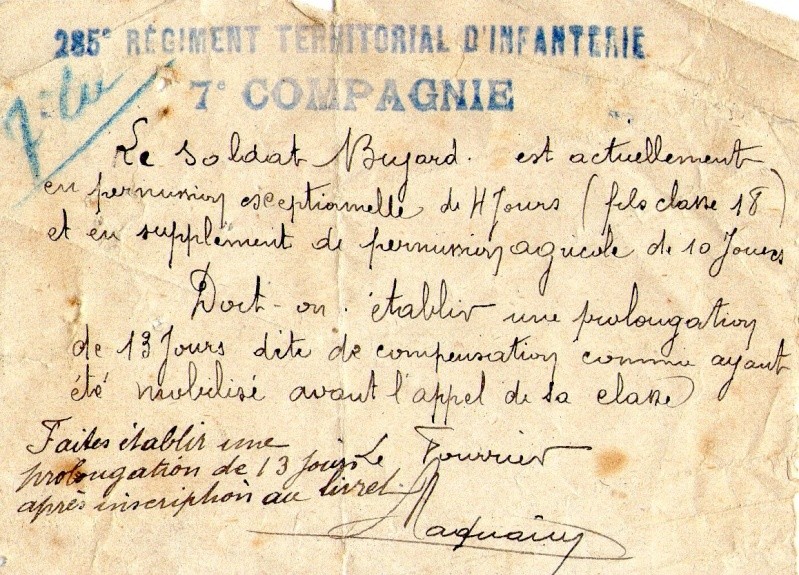 285e RÉGIMENT TERRITORIAL D'INFANTERIE
7e COMPAGNIE
Le Soldat Bujard. est actuellement
en permission exceptionnelle de 4 Jours (fils classe 18)
et en supplément de permission agricole de 10 Jours
Doit-on établir une prolongation
de 13 Jours dite de compensation comme ayant
été mobilisé avant l'appel de sa classe
Le Fourrier
Faites établir une
prolongation de 13 jours
après inscription au livret.